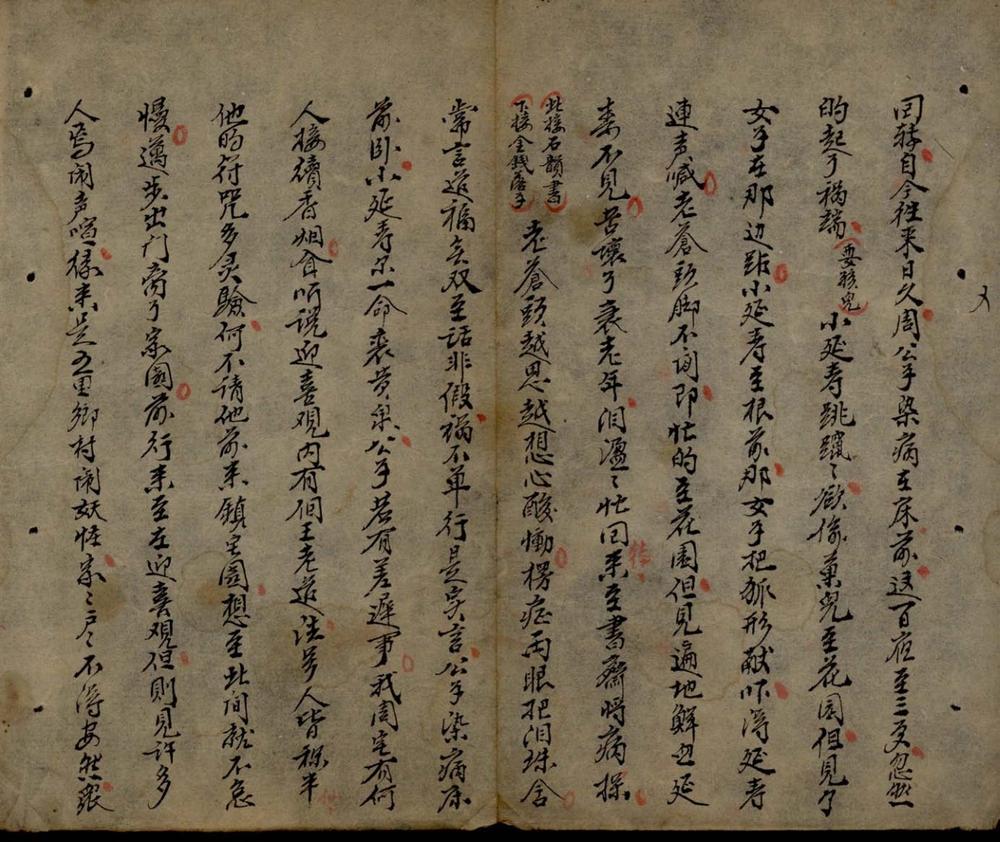 回轉自今徃来日久周公子染病在床前这一百夜至三更忽然
的起了禍端
要孩兒
小延寿跳躥〻欲偷菓児至花园但見了
女子在那边跕小延寿至根前那女子把狐形献吓得延寿
連声喊老蒼頭脚不閑即忙的至花園但見遍地鮮血延
寿不見苦壞了衰老年泪温〻忙回来至書齋将病探
此接石韻書
下接金錢落子
老蒼頭越思越想心酸慟楞症両眼把泪珠含
常言道福無双至話非假禍不单行是实言公子染病床
前卧小延寿尓一命喪黄泉公子若有差遲事我周宅有何
人接續香烟食听说迎喜观内有個王老道法号人皆称半
他的符咒多灵驗何不请他前来鎮宅園想至此間就不怠
慢邁步出门离了宗園前行来至在迎喜观但则見许多
人焉闹声喧様来是五里鄉村闹妖怪家〻户〻不得安然衆